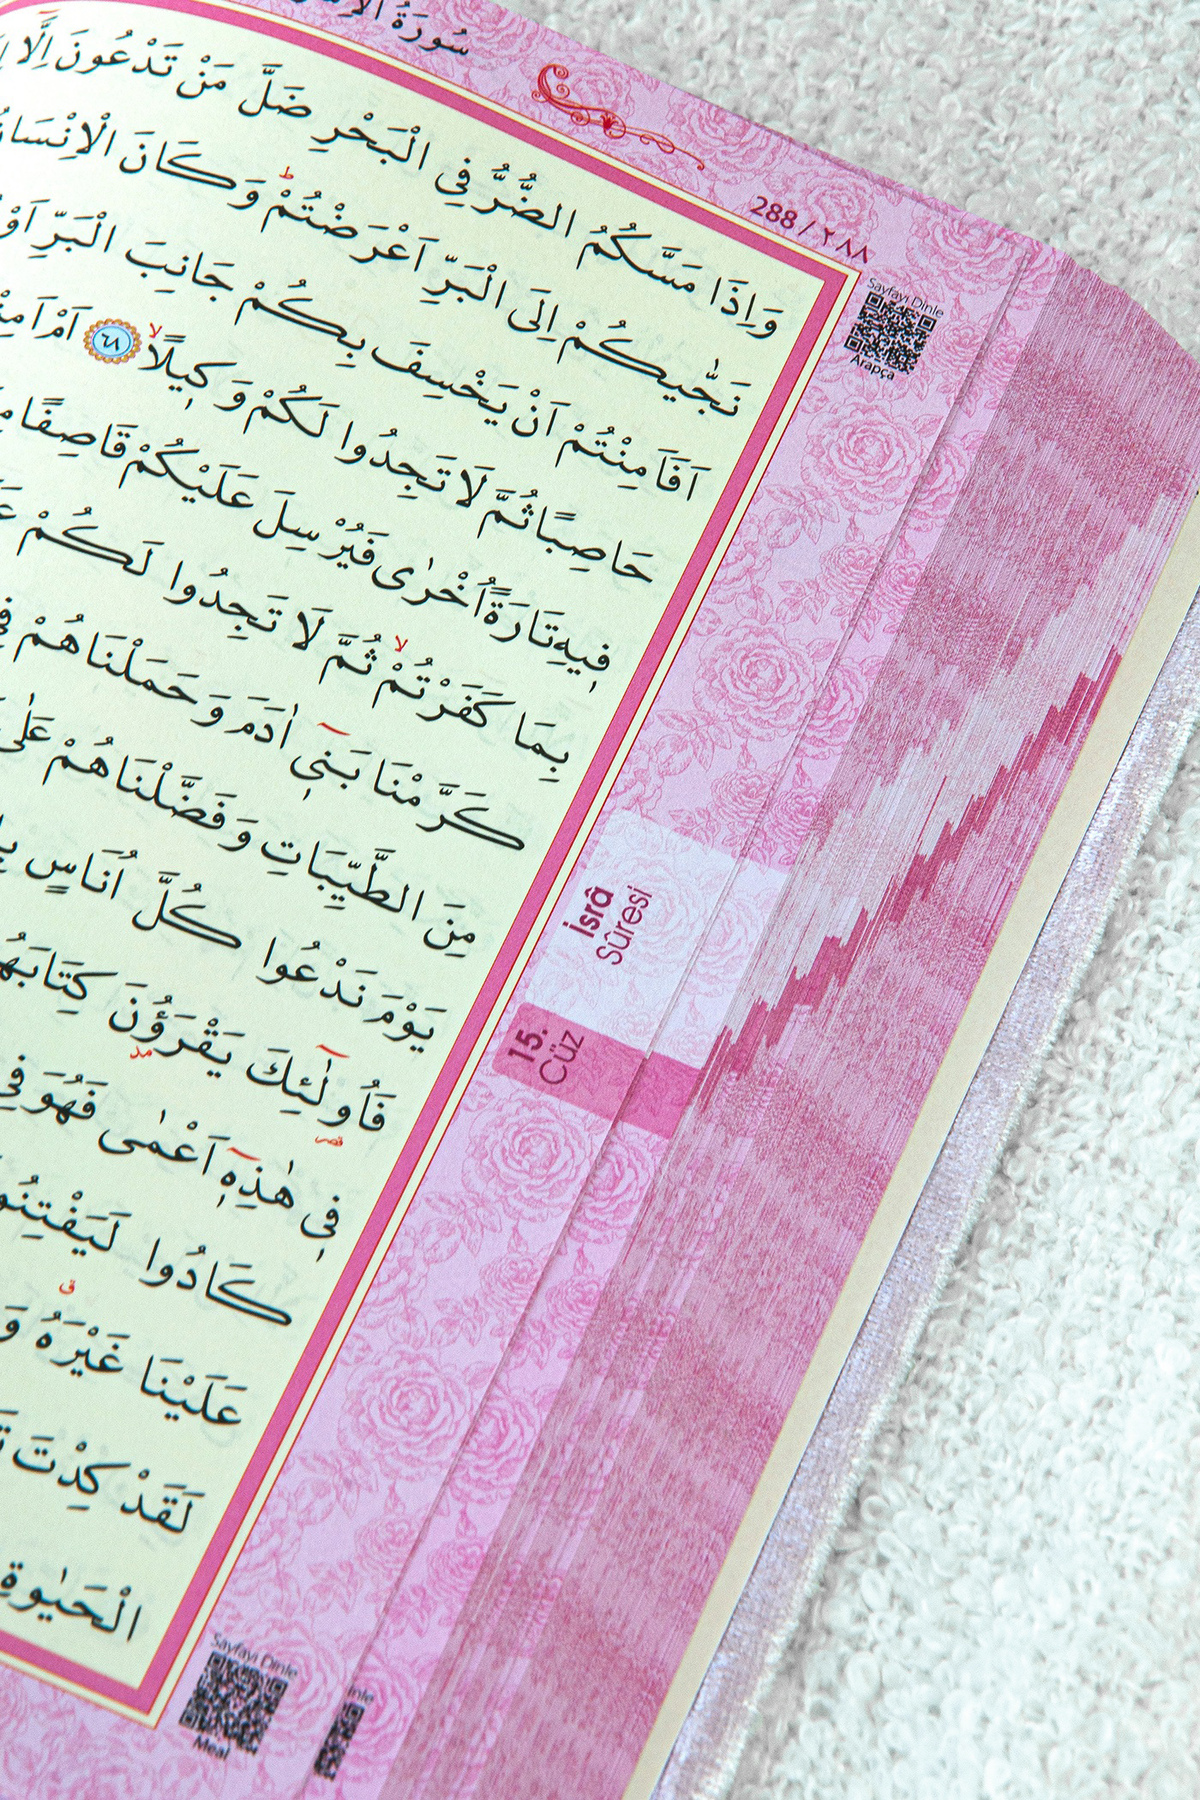 سُورَةُ
288 / ٢٨٨
وَاِذَا مَسَّكُمُ الضُّرُّ فِي الْبَحْرِ ضَلَّ مَنْ تَدْعُونَ اِلَّٓا
نَجّٰيكُمْ اِلَى الْبَرِّ اَعْرَضْتُمْۜ وَكَانَ الْاِنْسَانُ
اَفَاَمِنْتُمْ اَنْ يَخْسِفَ بِكُمْ جَانِبَ الْبَرِّ اَوْ
حَاصِبًا ثُمَّ لَا تَجِدُوا لَكُمْ وَكِيلًاۙ ٦٨ اَمْ اَمِنْتُمْ
فِيهِ تَارَةً اُخْرٰى فَيُرْسِلَ عَلَيْكُمْ قَاصِفًا
بِمَا كَفَرْتُمْۙ ثُمَّ لَا تَجِدُوا لَكُمْ
كَرَّمْنَا بَنٖٓي اٰدَمَ وَحَمَلْنَاهُمْ فِي
مِنَ الطَّيِّبَاتِ وَفَضَّلْنَاهُمْ عَلٰى
يَوْمَ نَدْعُوا كُلَّ اُنَاسٍ
فَاُو۬لٰٓئِكَ يَقْرَؤُ۫نَ كِتَابَهُمْ
فٖي هٰذِهٖٓ اَعْمٰى فَهُوَ فِي
كَادُوا لَيَفْتِنُونَكَ
عَلَيْنَا غَيْرَهُۗ وَ
لَقَدْ كِدْتَ
الْحَيٰوةِ
Sayfayı Dinle
Arapça
İsrâ
Sûresi
15.
Cüz
Sayfayı Dinle
Meal